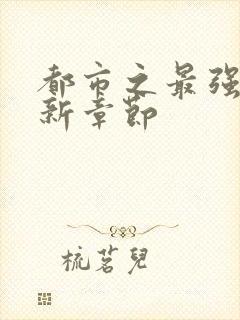 都市之最强
新章节
梳茗兒